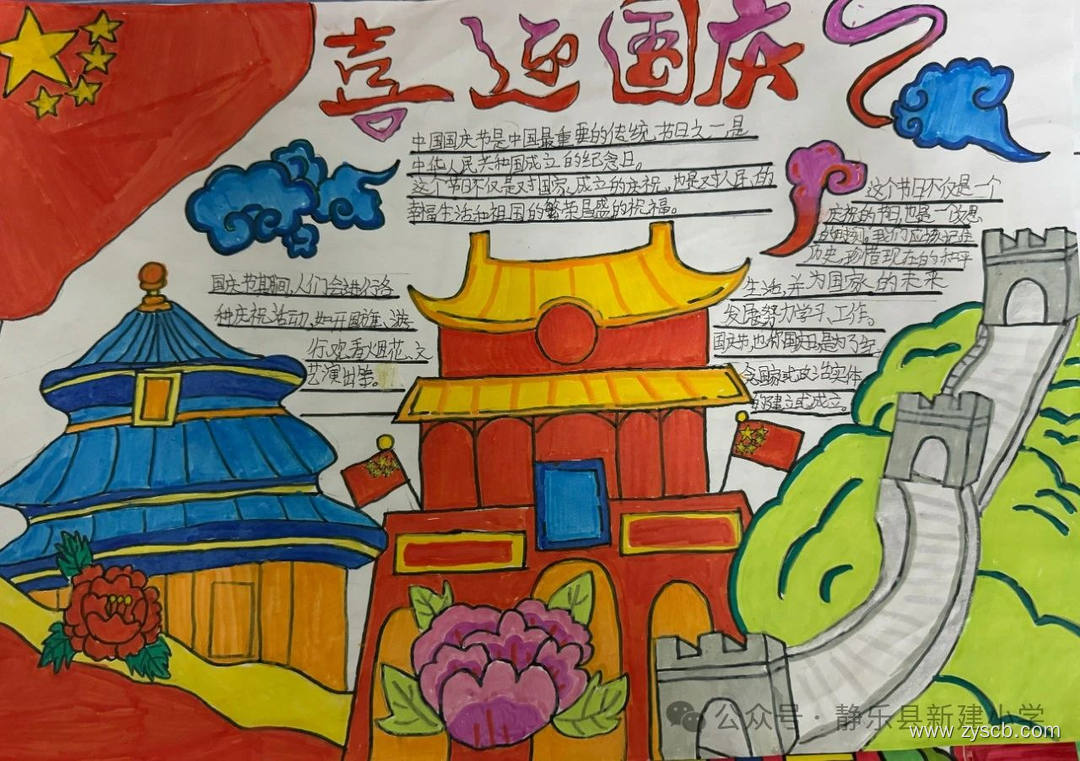 喜迎国庆
中国国庆节是中国最重要的传统节日之一是
中华人民共和国成立的纪念日。
这个节日不仅是对国家、成立的庆祝。也是对人民的
幸福生活和祖国的繁荣昌盛的祝福。
国庆节期间,人们会进行各
种庆祝活动,如升国旗、游
行、观看烟花、文
艺演出等。
这个节日不仅是一个
庆祝的节日,也是一个反思
的时刻。我们应该记住
历史,珍惜现在的和平
生活,并为国家的未来
发展努力学习、工作。
国庆节,也称国庆日,是为了纪
念国家或政治实体
的建立或成立。
公众号·静乐县新建小学
www.zyscb.com